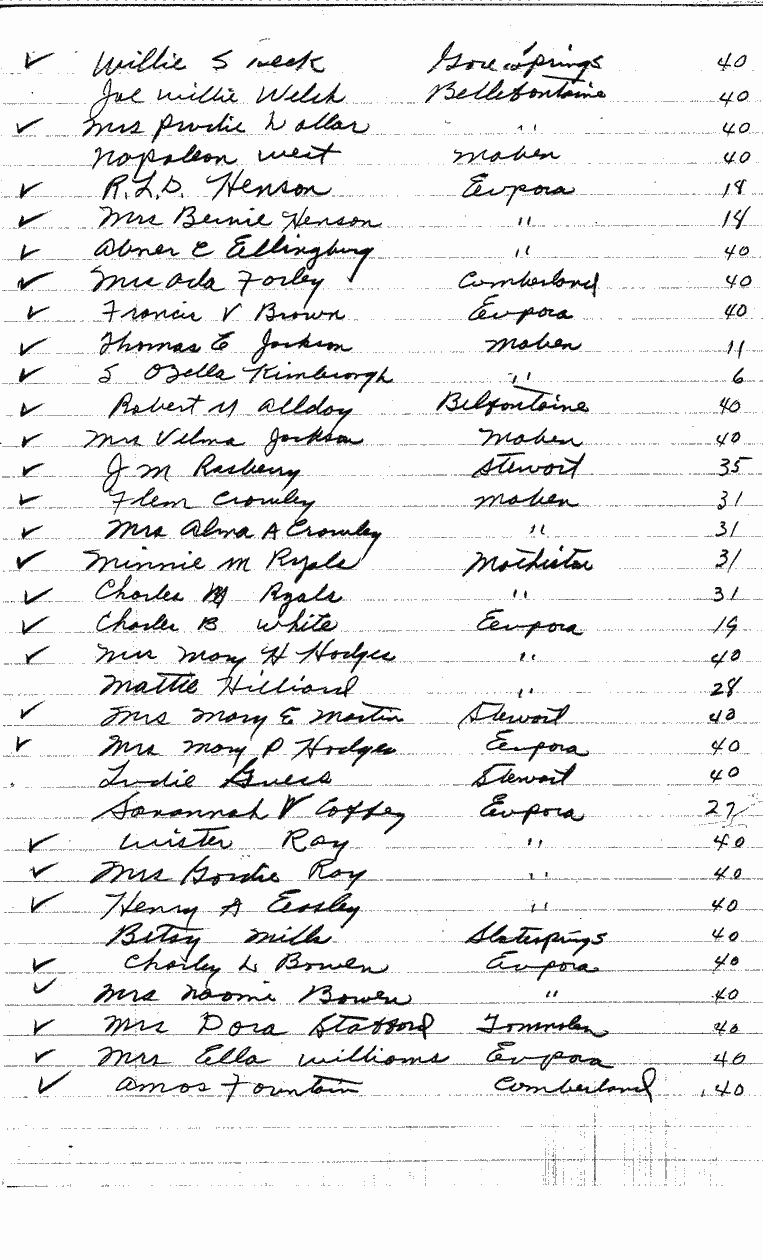 ✓ Willie S Meek Gore Springs 40
Joe Willie Welch Bellefontaine 40
✓ Mrs Purdie Dollar " 40
Napoleon West Maben 40
✓ R.L.D. Henson Eupora 18
✓ Mrs Bernie Henson " 18
✓ Abner E Ellingburg " 40
✓ Mrs Ada Forley Cumberland 40
✓ Francis V Brown Eupora 40
✓ Thomas E Jackson Maben 11
✓ S Ozella Kimbrorgh " 6
✓ Robert M Allday Belfontaine 40
✓ Mrs Velma Jackson Maben 40
✓ J M Rasberry Stewart 35
✓ Flem Crowley Maben 31
✓ Mrs Alma A Crowley " 31
✓ Minnie M Ryals Mathiston 31
✓ Charles M Ryals " 31
✓ Charles B White Eupora 19
✓ Mrs Mary H Hodges " 40
Mattie Hilliard " 28
✓ Mrs Mary E Martin Stewart 40
✓ Mrs Mary P Hodges Eupora 40
Ludie Guess Stewart 40
Savannah V Coffey Eupora 27
✓ Wister Ray " 40
✓ Mrs Gordie Ray " 40
✓ Henry A Easley " 40
Betsy Mills Slatesprings 40
✓ Charley L Bowen Eupora 40
✓ Mrs Naomi Bowen " 40
✓ Mrs Dora Stafford Tomnolen 40
✓ Mrs Ella Williams Eupora 40
✓ Amos Fountain Cumberland 40